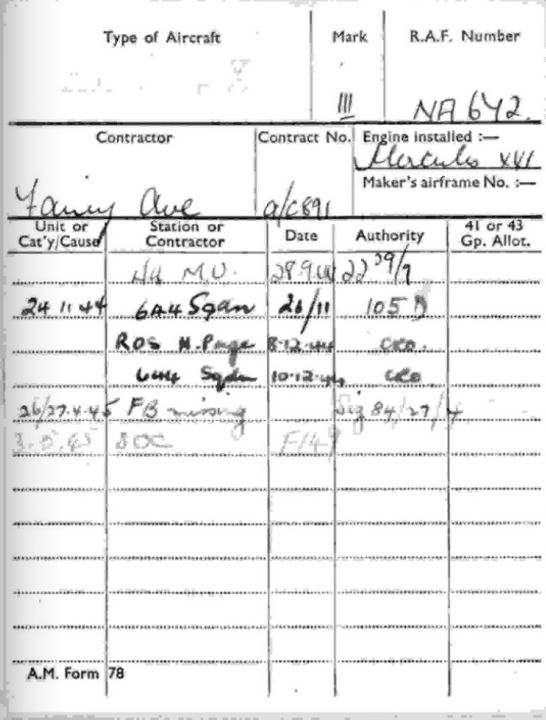 Type of Aircraft Mark R.A.F. Number
III NA 642.
Contractor Contract No. Engine installed :—
Hercules XVI
Maker's airframe No. :—
Fairey Ave a/c891
Unit or Cat'y/Cause Station or Contractor Date Authority 41 or 43 Gp. Allot.
44 M.U. 28.9.44 22 29/9
24 11 44 644 Sqdn 26/11 105
ROS H. Page 8.12.44 CRO.
644 Sqdn 10.12.44 CRO
26/27.4.45 FB missing Sig 84/27/4
3.5.45 SOC F1149
A.M. Form 78